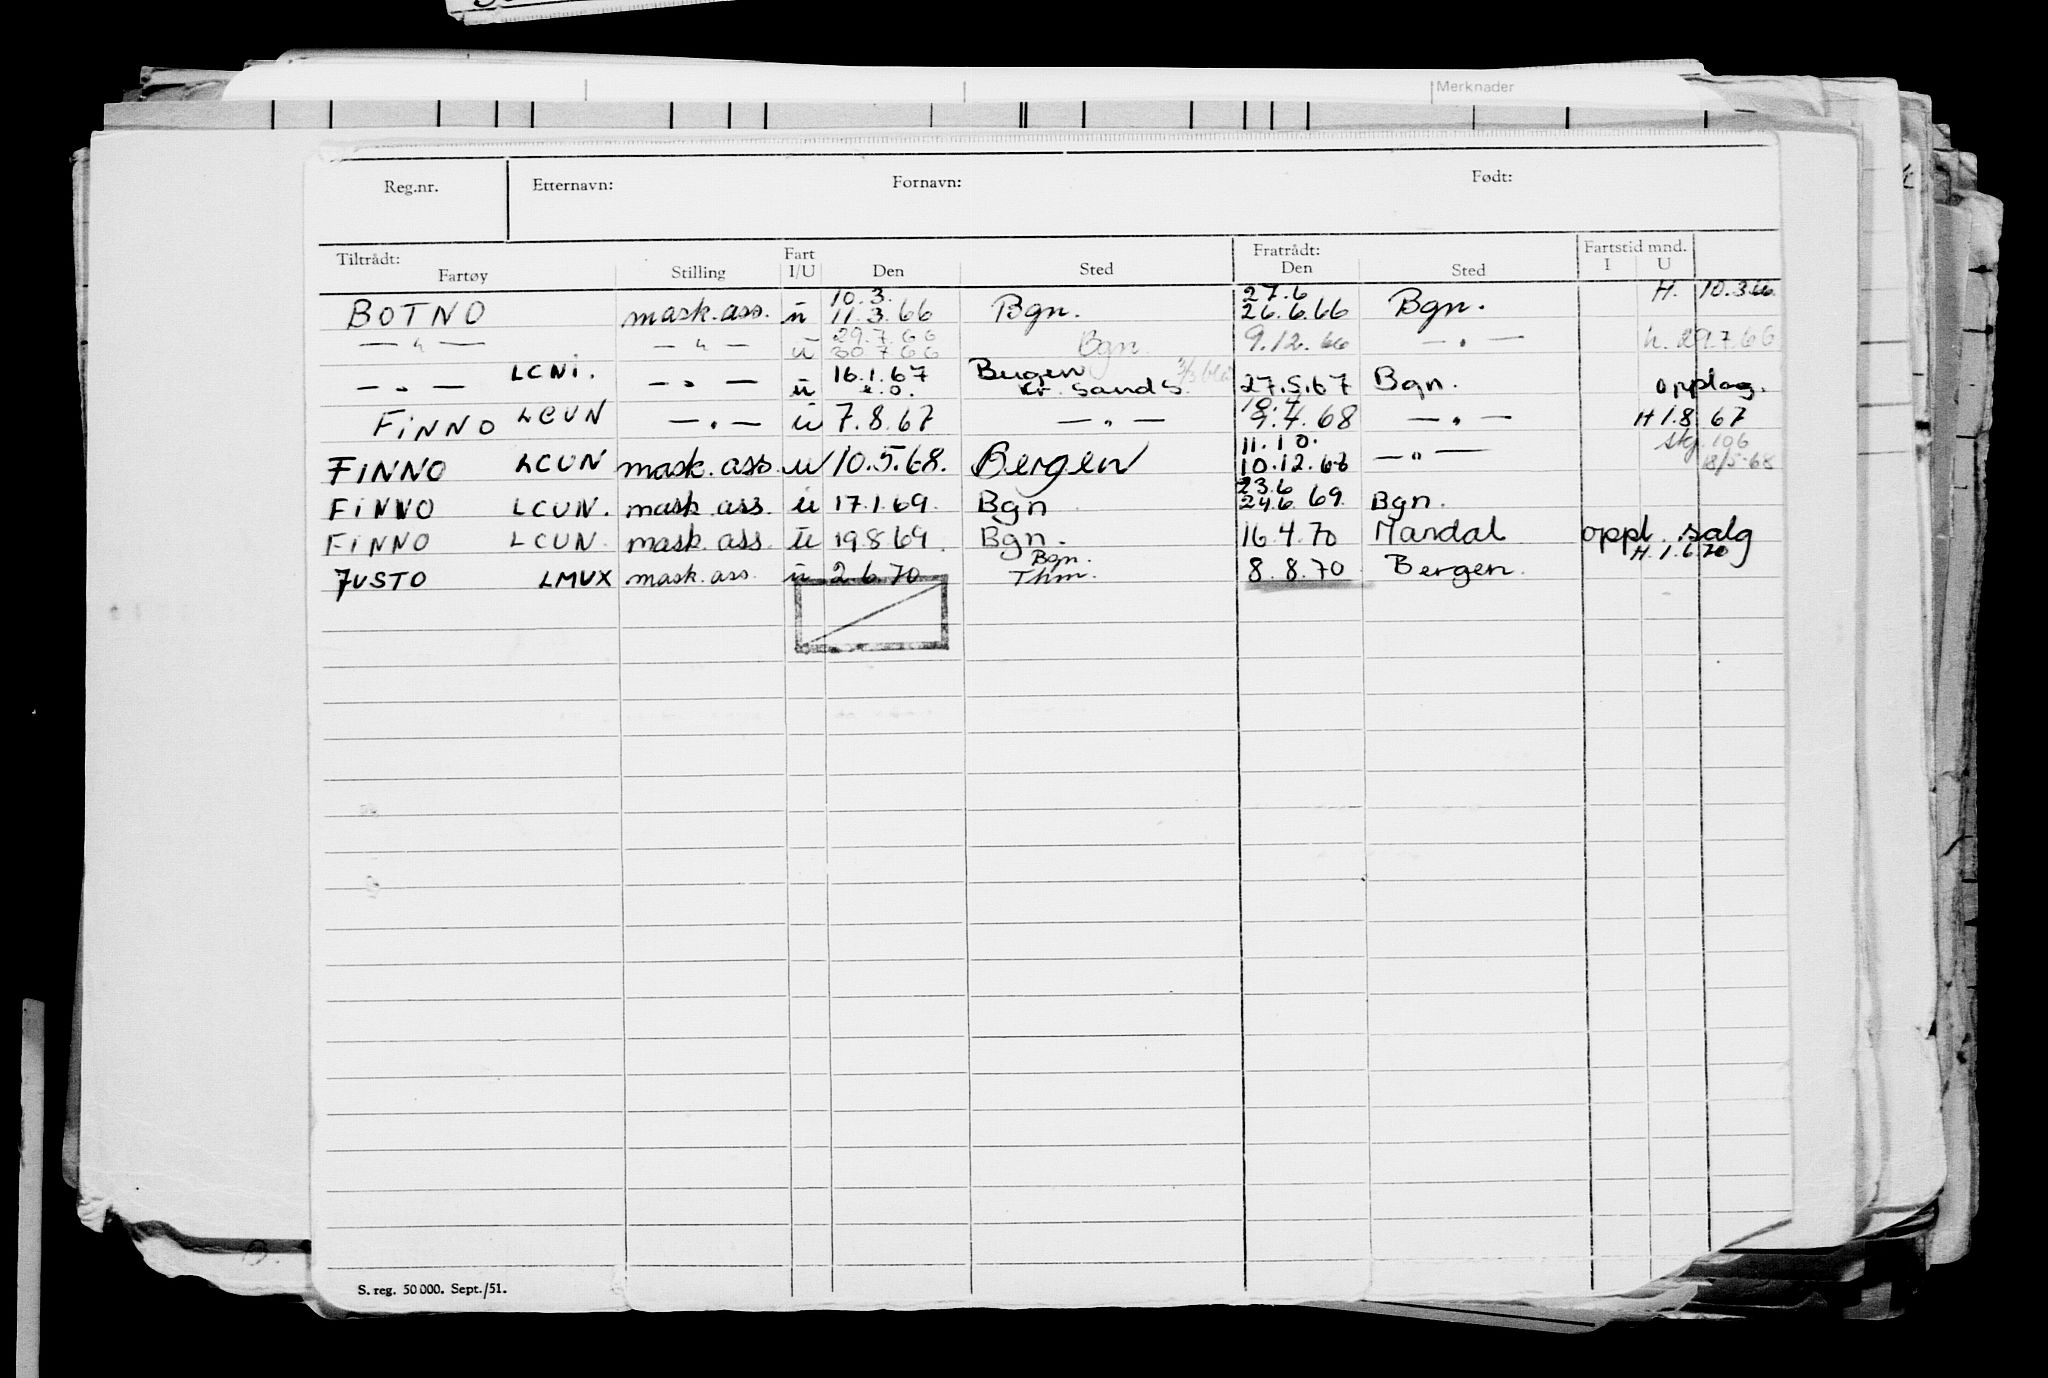 Merknader
Reg.nr. Etternavn: Fornavn: Født:
Tiltrådt: Fart Fratrådt: Fartstid mnd.
Fartøy Stilling I/U Den Sted Den Sted I U
10.3. 27.6 H. 10.3.66
BOTNO mask.ass. u 11.3.66 Bgn. 26.6.66 Bgn.
29.7.66
— " — — " — u 30.7.66 Bgn. 9.12.66 — " — h. 29.7.66
LCNI. 16.1.67 Bergen
— " — — " — u e.o. Kr.sand S. 27.5.67 Bgn. opplag.
10.4
FINNO LCUN — " — u 7.8.67 — " — 9.4.68 — " — H 1.8 67
11.10. 106
FINNO LCUN mask.ass. u 10.5.68. Bergen 10.12.68 — " — 18/5-68
23.6
FINNO LCUN. mask.ass. u 17.1.69. Bgn 24.6 69. Bgn.
FINNO LCUN. mask.ass. u 19.8.69. Bgn. 16.4.70 Mandal oppl. salg
Bgn. H. 1.6.70
JUSTO LMUX mask.ass. u 2.6.70 Thm. 8.8.70 Bergen.
S. reg. 50 000. Sept./51.